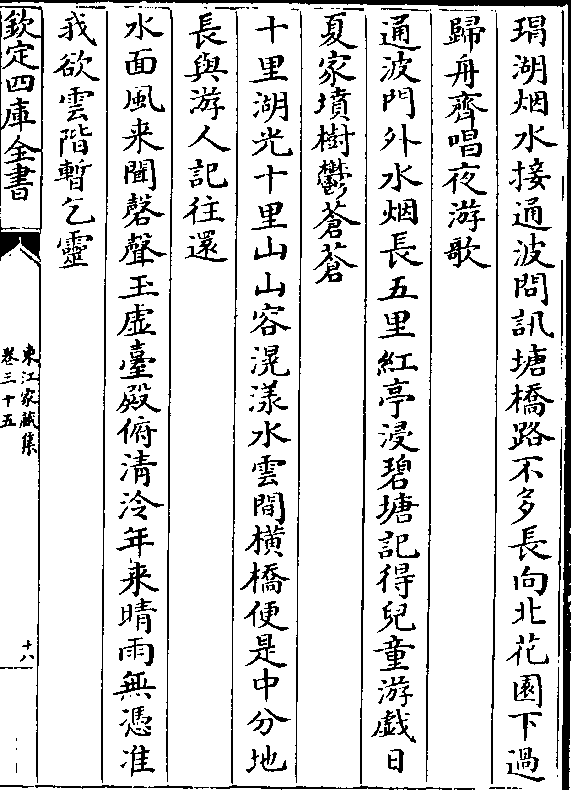 瑁湖烟水接通波問訊塘橋路不多長向北花園下過
歸舟齊唱夜游歌
通波門外水烟長五里紅亭浸碧塘記得兒童游戲日
夏家墳樹鬱蒼蒼
十里湖光十里山山容滉漾水雲間橫橋便是中分地
長與游人記往還
水面風来聞磬聲玉虛臺殿俯清泠年来晴雨無憑准
我欲雲階暫乞靈
欽定四庫全書
東江家藏集
卷三十五
十八